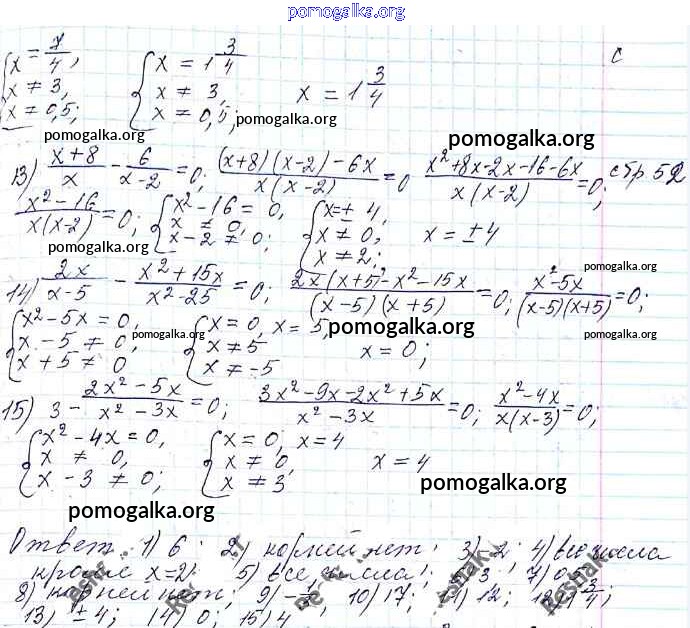 pomogalka.org
{ x = 7/4, x ≠ 3, x ≠ 0,5; { x = 1 3/4 x ≠ 3, x ≠ 0,5; x = 1 3/4 с
pomogalka.org pomogalka.org pomogalka.org
13) (x+8)/x - 6/(x-2) = 0; ((x+8)(x-2)-6x)/(x(x-2)) = 0 (x²+8x-2x-16-6x)/(x(x-2)) = 0; стр 52
(x²-16)/(x(x-2)) = 0; { x²-16 = 0, x ≠ 0, x-2 ≠ 0; { x = ± 4, x ≠ 0, x ≠ 2; x = ±4
pomogalka.org pomogalka.org
14) 2x/(x-5) - (x²+15x)/(x²-25) = 0; (2x(x+5)-x²-15x)/((x-5)(x+5)) = 0; (x²-5x)/((x-5)(x+5)) = 0;
{ x²-5x = 0, x-5 ≠ 0, x+5 ≠ 0 { x = 0, x = 5, x ≠ 5 x ≠ -5 x = 0;
pomogalka.org pomogalka.org
15) 3 - (2x²-5x)/(x²-3x) = 0; (3x²-9x-2x²+5x)/(x²-3x) = 0; (x²-4x)/(x(x-3)) = 0;
{ x²-4x = 0, x ≠ 0, x-3 ≠ 0; { x = 0; x = 4 x ≠ 0, x ≠ 3 x = 4
pomogalka.org
pomogalka.org
Ответ: 1) 6; 2) корней нет; 3) -2; 4) все числа
кроме x=2; 5) все числа; 3 7) 0,5
8) корней нет; 9) 10) 17; 11) 12; 3/4;
13) ±4; 14) 0; 15) 4